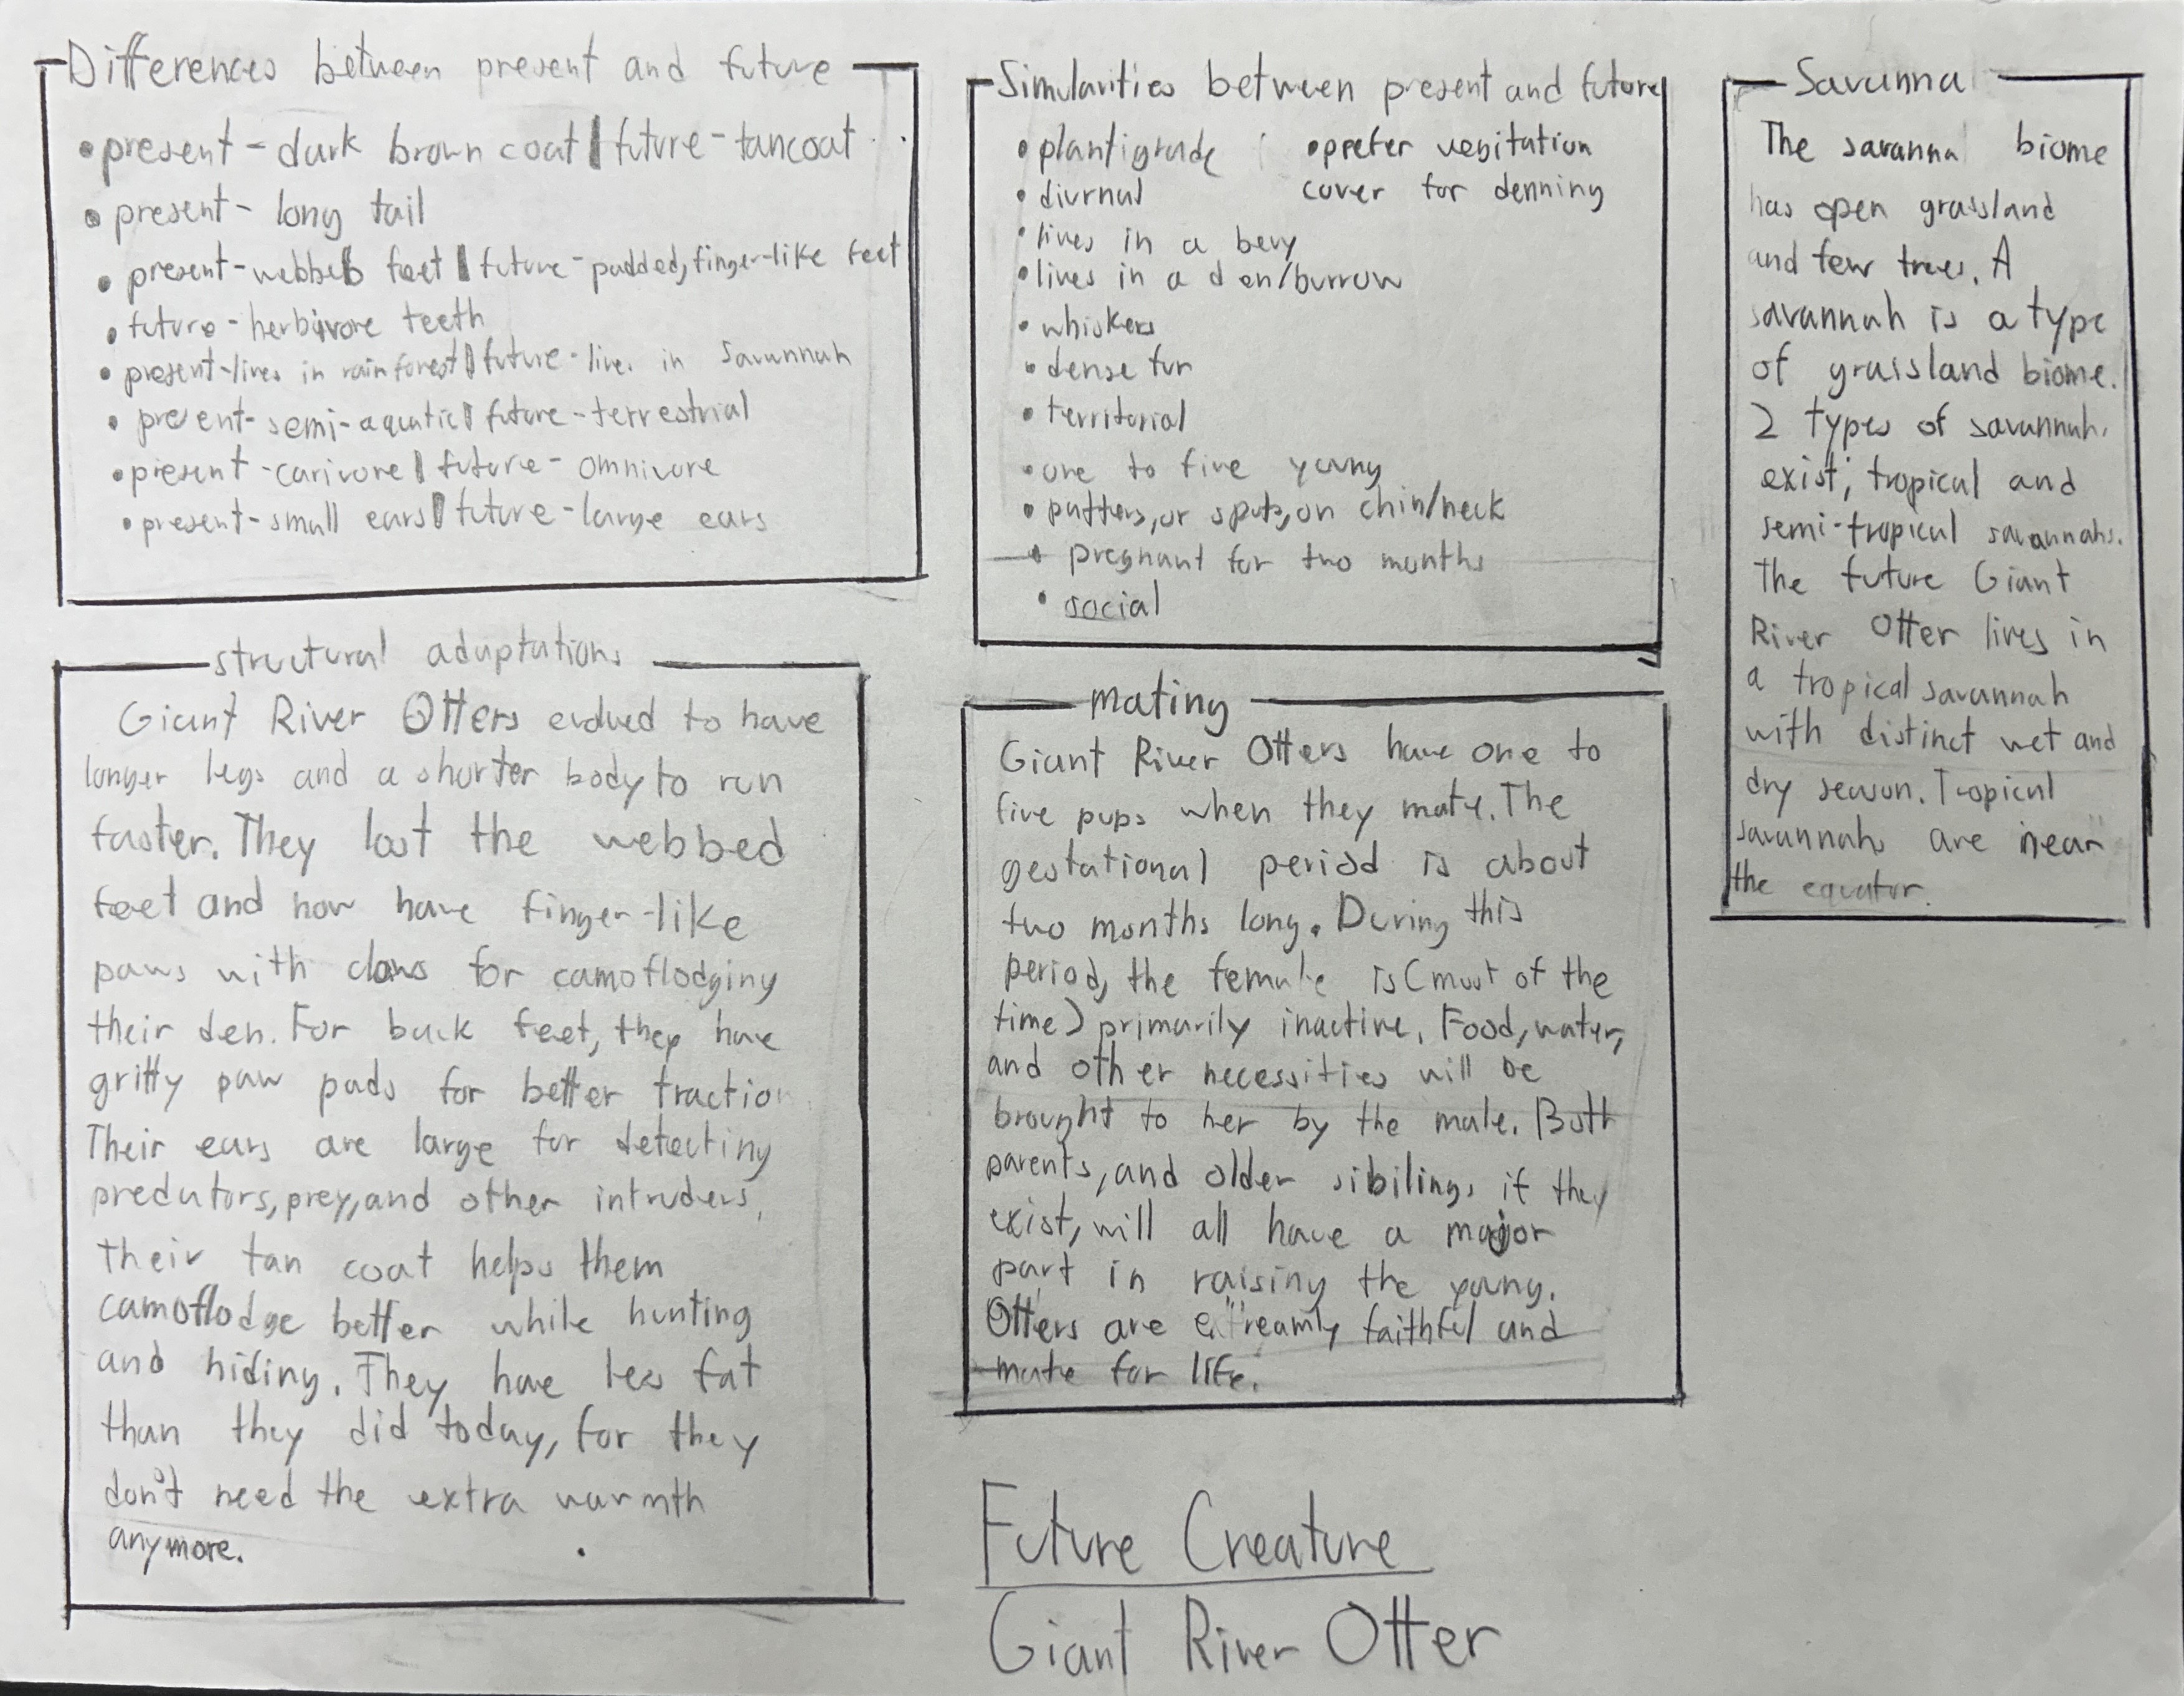 Differences between present and future
• present - dark brown coat | future - tan coat
• present - long tail
• present - webbed feet | future - padded, finger-like feet
• future - herbivore teeth
• present - lives in rainforest | future - lives in savannah
• present - semi-aquatic | future - terrestrial
• present - carivore | future - omnivore
• present - small ears | future - large ears
structural adaptations
Giant River Otters evolved to have
longer legs and a shorter body to run
faster. They lost the webbed
feet and now have finger-like
paws with claws for camoflodging
their den. For back feet, they have
gritty paw pads for better traction.
Their ears are large for detecting
predators, prey, and other intruders,
their tan coat helps them
camoflodge better while hunting
and hiding. They have less fat
than they did today, for they
don't need the extra warmth
anymore.
Simularities between present and future
• plantigrade
• diurnal
• lives in a bevy
• lives in a den/burrow
• whiskers
• dense fur
• territorial
• one to five young
• patters, or spots, on chin/neck
• pregnant for two months
• social
• prefer vegitation
cover for denning
mating
Giant River Otters have one to
five pups when they mate. The
gestational period is about
two months long. During this
period, the female is (most of the
time) primarily inactive. Food, water,
and other necessities will be
brought to her by the male. Both
parents, and older sibilings if they
exist, will all have a major
part in raising the young.
Otters are extreamly faithful and
mate for life.
Savanna
The savanna biome
has open grassland
and few trees. A
savannah is a type
of grassland biome.
2 types of savannahs
exist; tropical and
semi-tropical savannahs.
The future Giant
River Otter lives in
a tropical savannah
with distinct wet and
dry season. Tropical
savannahs are near
the equator.
Future Creature
Giant River Otter